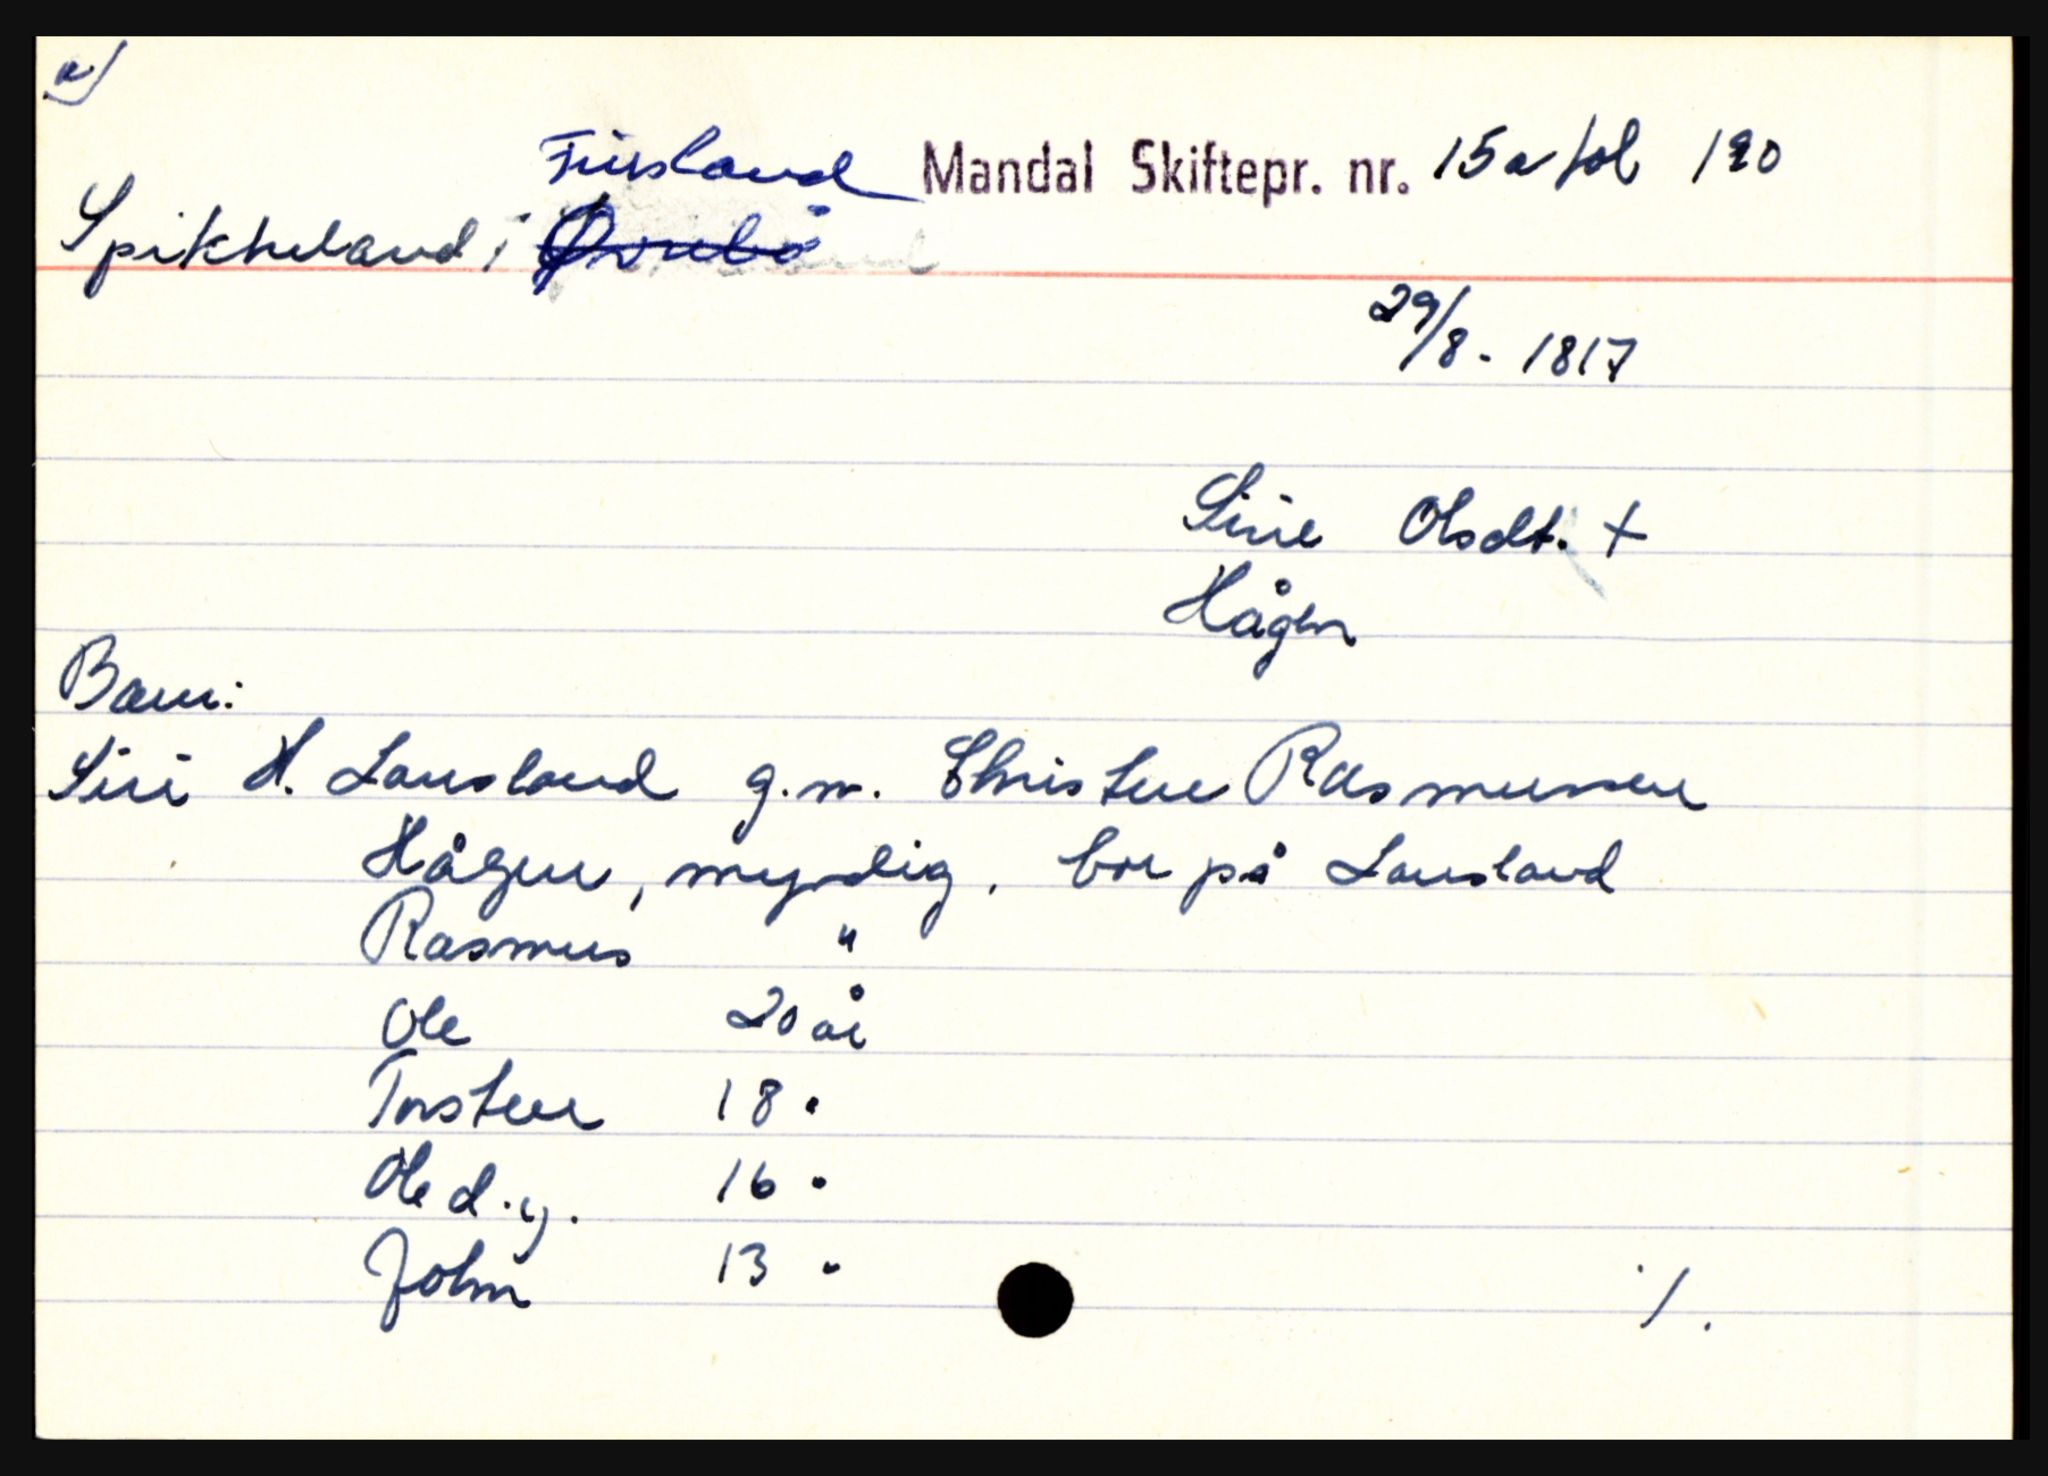 a)
Finsland Mandal Skiftepr. nr. 15a fol 120
Spikkeland i Øvrebö
29/8 - 1817
Sirie Olsdt. +
Hågen
Barn:
Siri H. Lausland g.m. Christen Rasmussen
Hågen, myndig, bor på Lausland
Rasmus "
Ole 20 år
Torsten 18 "
Ole d.y. 16 "
John 13 "
./.